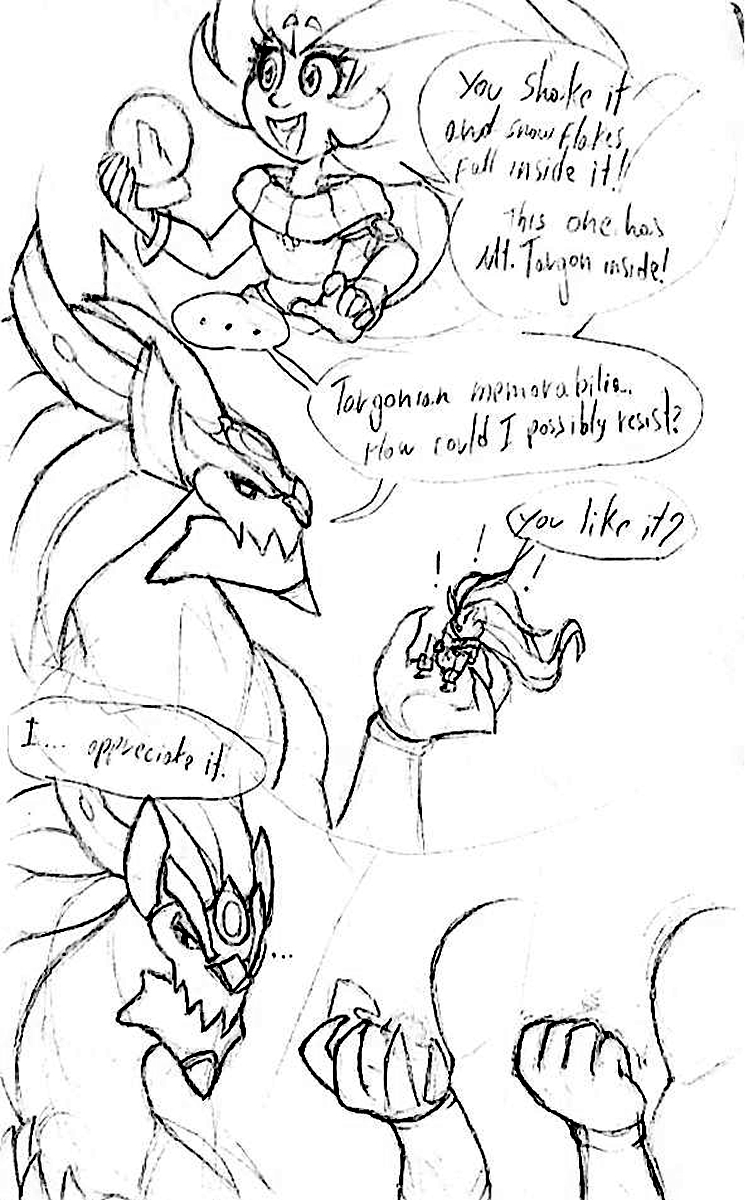 You shake it
and snow flakes
fall inside it!
This one has
Mt. Targon inside!
...
Targonian memorabilia.
How could I possibly resist?
You like it?
! ! !
I... appreciate it.
...